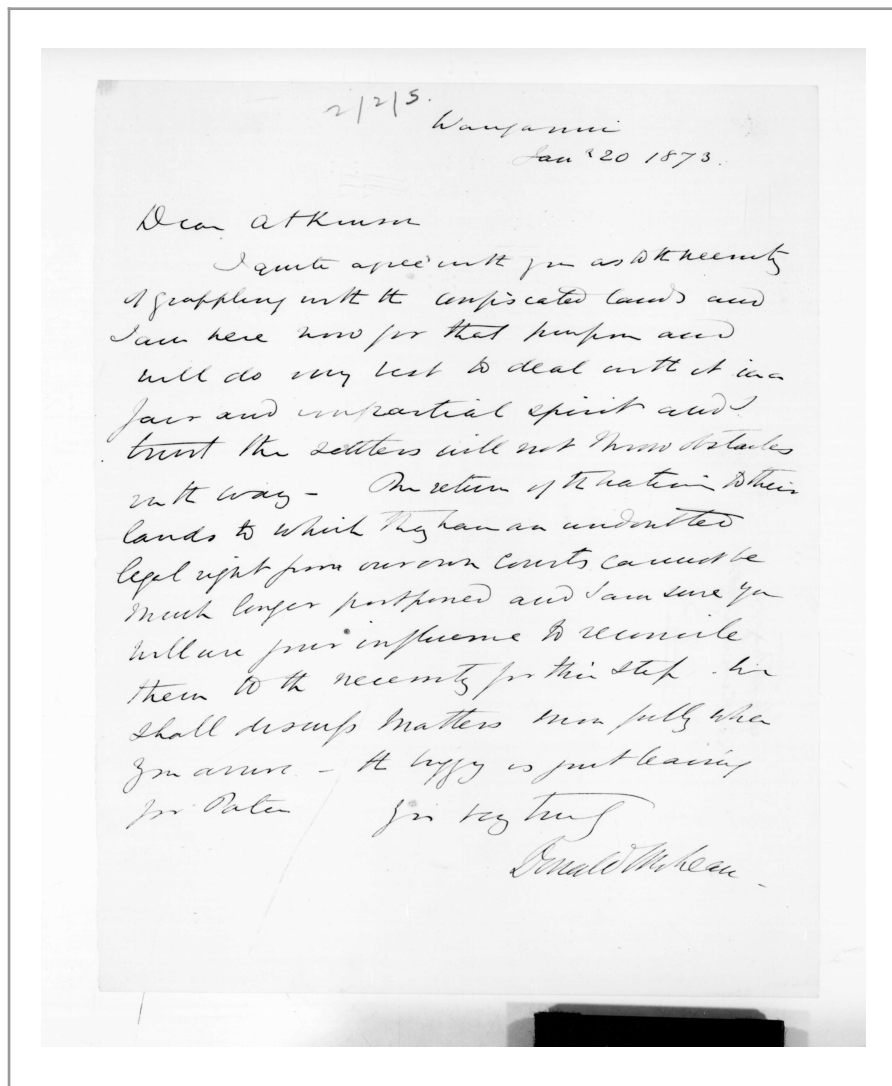 2/2/5.
Wanganui
Jany 20 1873.
Dear Atkinson
I quite agree with you as to the necessity
of grappling with the confiscated lands and
I am here now for that purpose and
will do my best to deal with it in a
fair and impartial spirit and I
trust the settlers will not throw obstacles
in the way – The return of the natives to their
lands to which they have an undoubted
legal right from our own Courts cannot be
much longer postponed and I am sure you
will use your influence to reconcile
them to the necessity for this step. We
shall discuss matters more fully when
you arrive – the buggy is just leaving
for Patea
Yrs very truly
Donald McLean